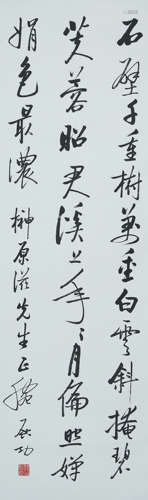 石壁千重樹萬重白雲斜掩碧
芙蓉昭君溪上年年月偏照嬋
娟色最濃 榊原滋先生正腕 啟功